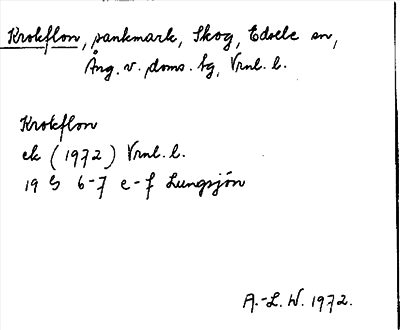 Krokflon, sankmark, Skog, Edsele sn,
Ång. v. doms. bg, Vrnl. l.
Krokflon
ek (1972) Vrnl. l.
19 G 6-7 e-f Lungsjön
A.-L. W. 1972.